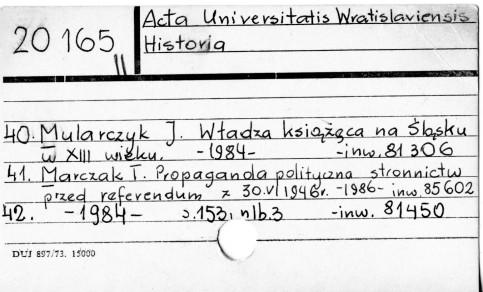 20 165
II
Acta Universitatis Wratislaviensis
Historia
40. Mularczyk J. Władza książęca na Śląsku
w XIII wieku. -1984- -inw. 81 306
41. Marczak T. Propaganda polityczna stronnictw
przed referendum z 30.VI 1946r. -1986- inw. 85602
42. -1984- s.153, nlb.3 -inw. 81450
DUJ 897/73. 15000